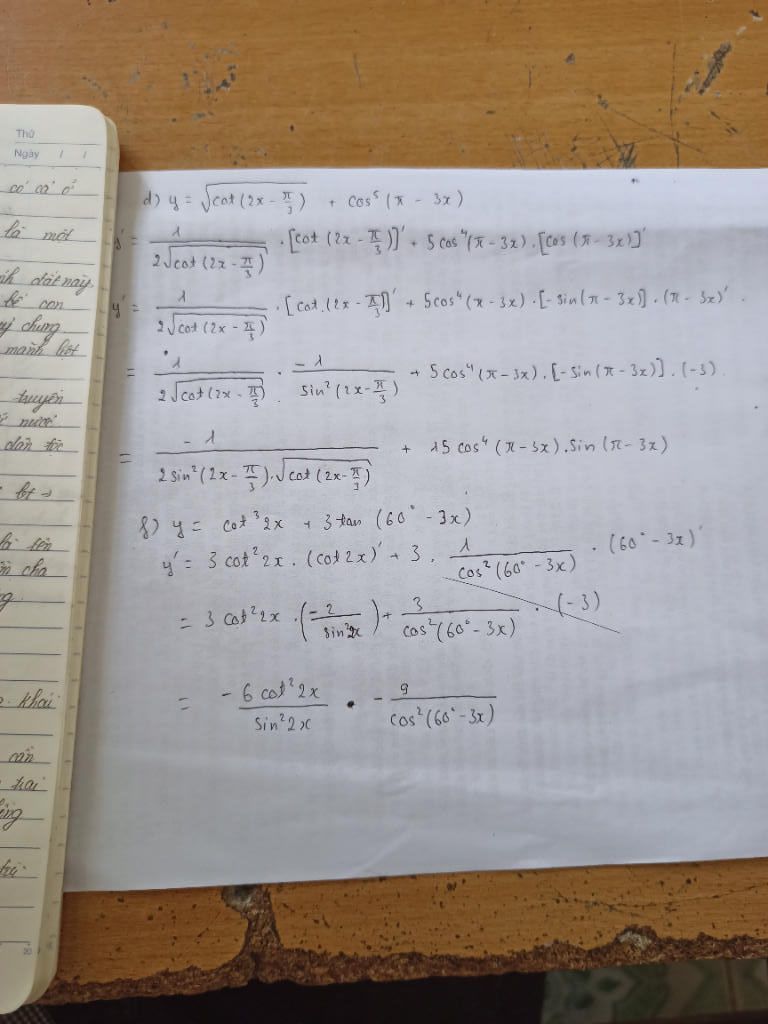 Thứ
Ngày / /
có cả ổ
là một
đất này
bể con
chung
mãnh liệt
truyền
nước
dân tộc
là tên
cha
khái
cần
trai
20
d) y = √(cot(2x - π/3)) + cos⁵(π - 3x)
y' = 1/(2√(cot(2x - π/3))) . [cot(2x - π/3)]' + 5cos⁴(π - 3x).[cos(π - 3x)]'
y' = 1/(2√(cot(2x - π/3))) . [cot(2x - π/3)]' + 5cos⁴(π - 3x).[-sin(π - 3x)].(π - 3x)'.
= 1/(2√(cot(2x - π/3))) . -1/(sin²(2x - π/3)) + 5cos⁴(π - 3x).[-sin(π - 3x)].(-3).
= -1/(2sin²(2x - π/3).√(cot(2x - π/3))) + 15cos⁴(π - 3x).sin(π - 3x)
f) y = cot³2x + 3tan(60° - 3x)
y' = 3cot²2x.(cot2x)' + 3 . 1/(cos²(60° - 3x)) . (60° - 3x)'
= 3cot²2x.(-2/(sin²2x)) + 3/(cos²(60° - 3x)) . (-3)
= -6cot²2x/(sin²2x) • - 9/(cos²(60° - 3x))